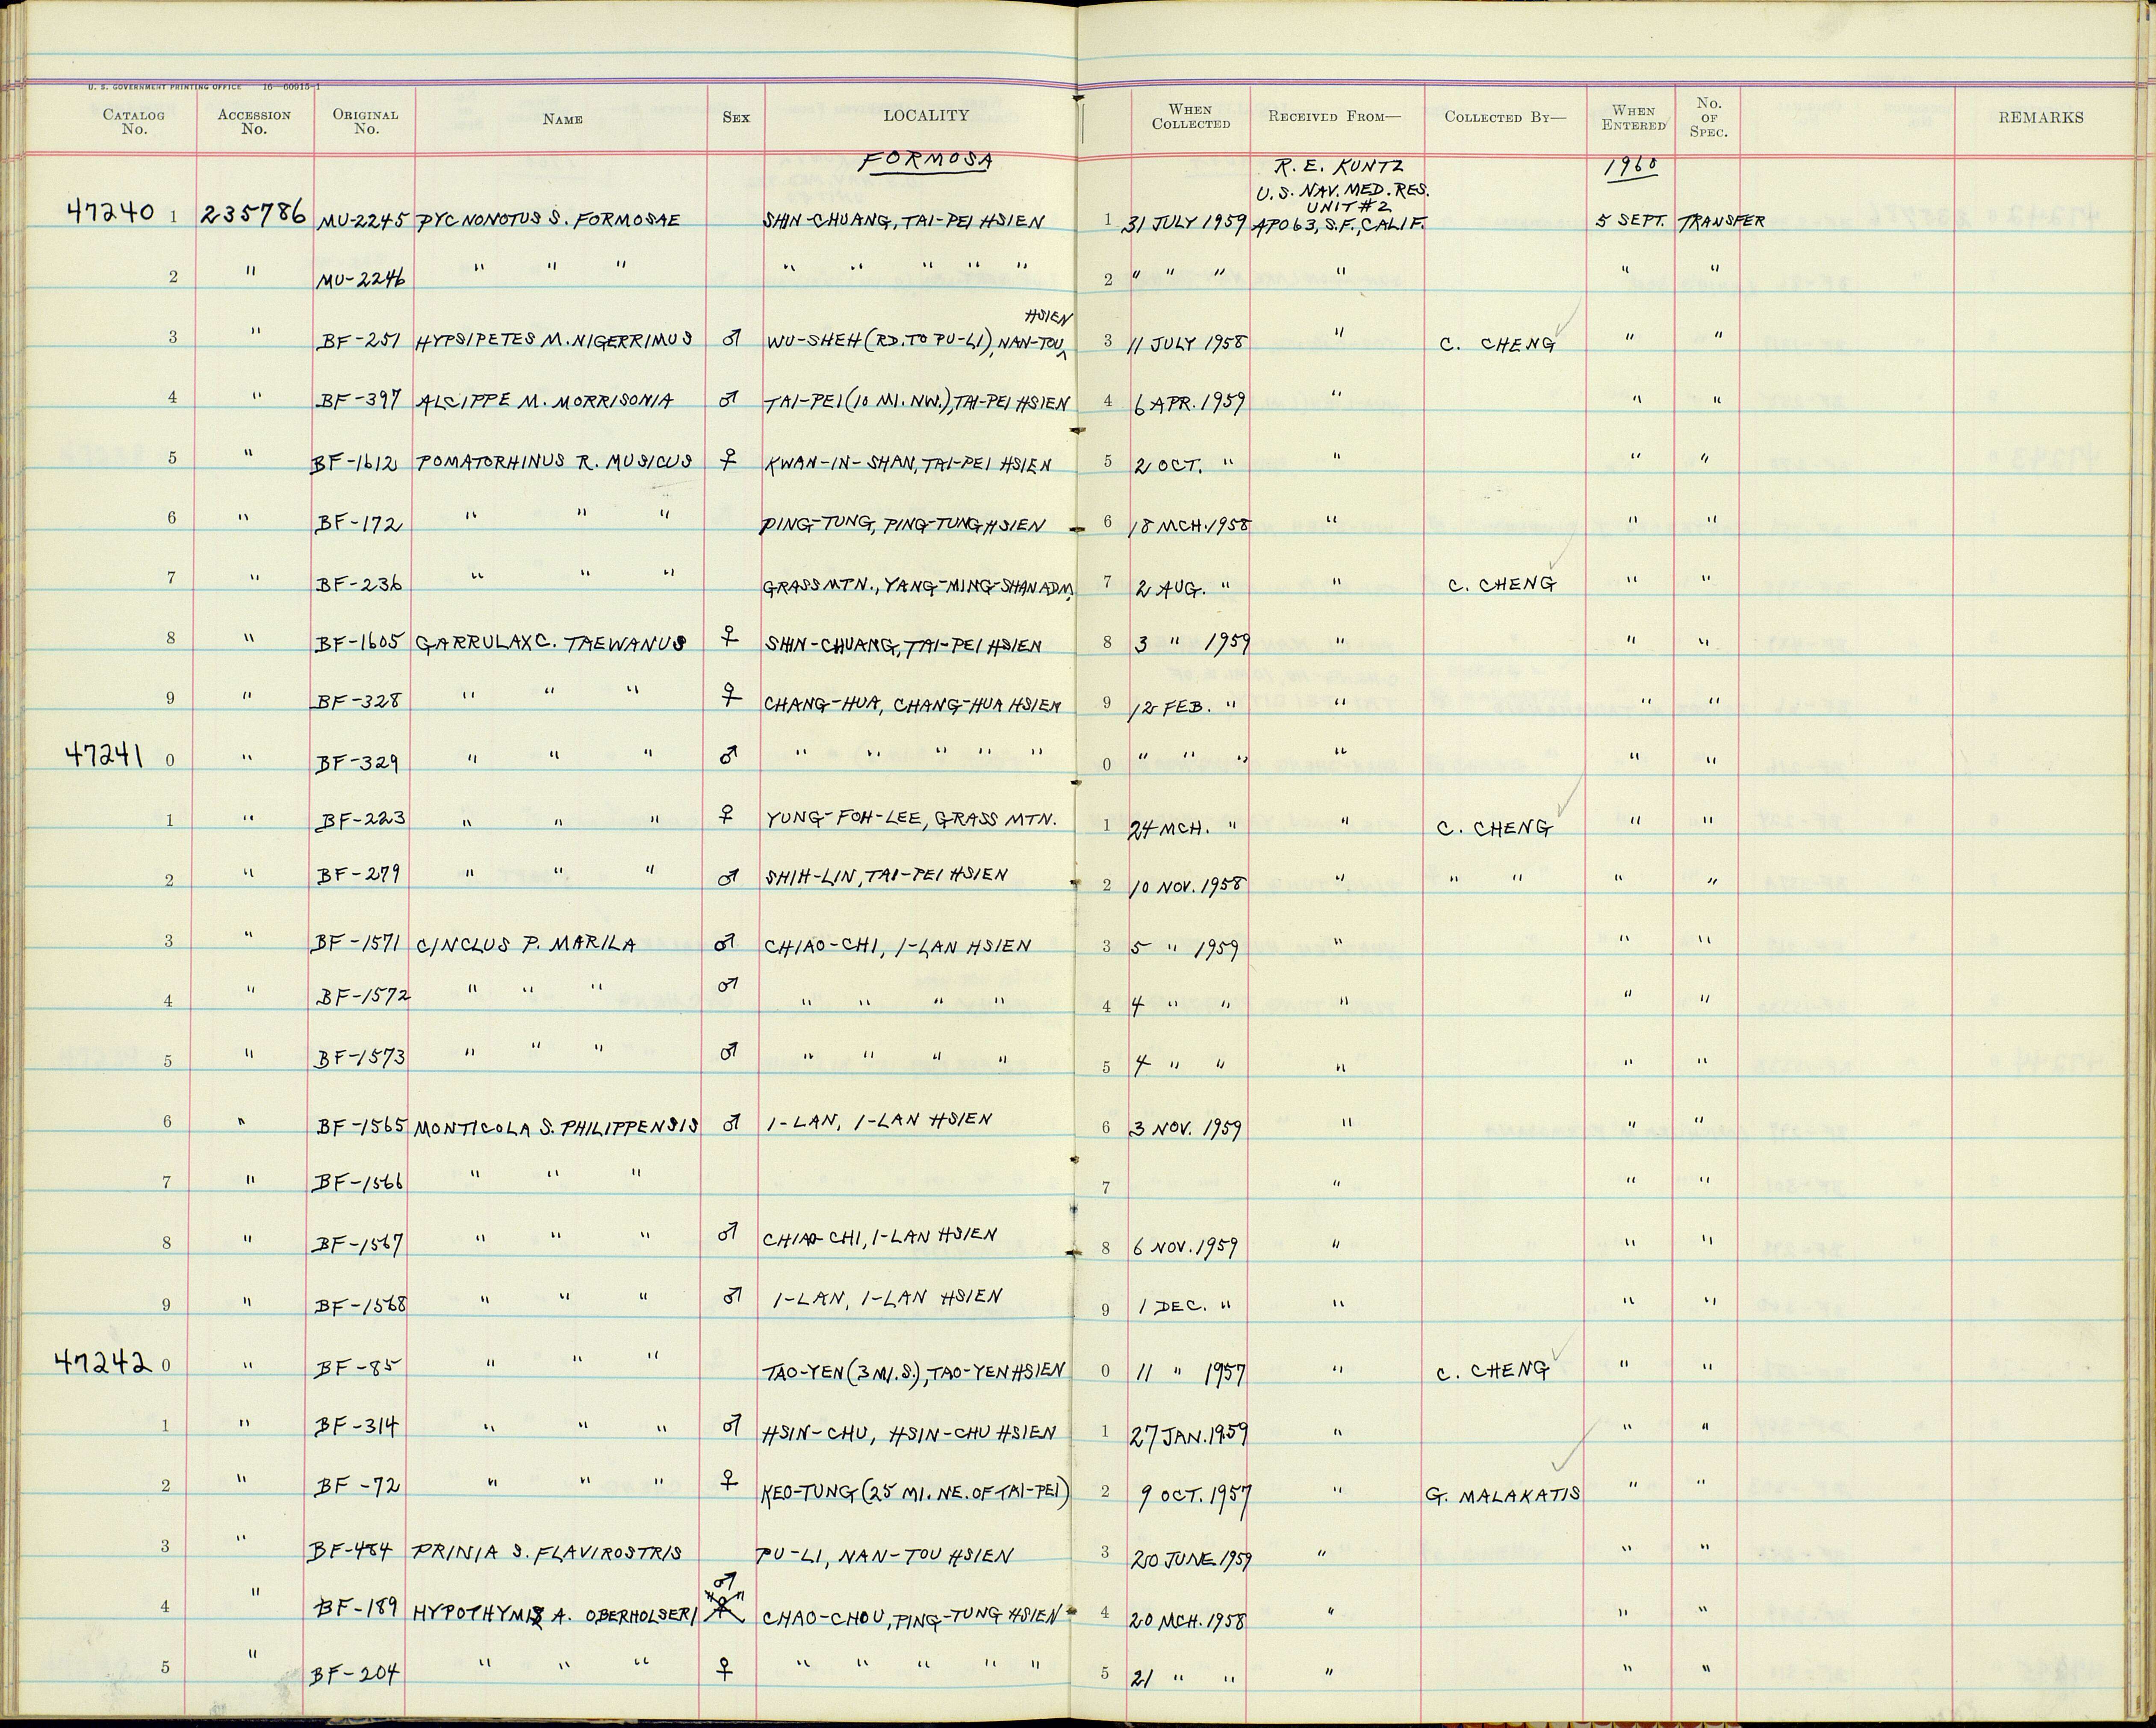 U. S. GOVERNMENT PRINTING OFFICE 16—60915-1
CATALOG No. ACCESSION No. ORIGINAL No. NAME SEX LOCALITY WHEN COLLECTED RECEIVED FROM— COLLECTED BY— WHEN ENTERED No. OF SPEC. REMARKS
FORMOSA R. E. KUNTZ 1960
U.S. NAV. MED. RES.
UNIT #2
47240 1 235786 MU-2245 PYCNONOTUS S. FORMOSAE SHIN-CHUANG, TAI-PEI HSIEN 1 31 JULY 1959 APO 63, S.F., CALIF. 5 SEPT. TRANSFER
2 " MU-2246 " " " " " " " " 2 " " " " " "
HSIEN
3 " BF-251 HYPSIPETES M. NIGERRIMUS ♂ WU-SHEH (RD. TO PU-LI), NAN-TOU 3 11 JULY 1958 " C. CHENG " "
4 " BF-397 ALCIPPE M. MORRISONIA ♂ TAI-PEI (10 MI. NW.), TAI-PEI HSIEN 4 6 APR. 1959 " " "
5 " BF-1612 POMATORHINUS R. MUSICUS ♀ KWAN-IN-SHAN, TAI-PEI HSIEN 5 2 OCT. " " " "
6 " BF-172 " " " PING-TUNG, PING-TUNG HSIEN 6 18 MCH. 1958 " " "
7 " BF-236 " " " GRASS MTN., YANG-MING-SHAN ADM. 7 2 AUG. " " C. CHENG " "
8 " BF-1605 GARRULAX C. TAEWANUS ♀ SHIN-CHUANG, TAI-PEI HSIEN 8 3 " 1959 " " "
9 " BF-328 " " " ♀ CHANG-HUA, CHANG-HUA HSIEN 9 12 FEB. " " " "
47241 0 " BF-329 " " " ♂ " " " " " 0 " " " " " "
1 " BF-223 " " " ♀ YUNG-FOH-LEE, GRASS MTN. 1 24 MCH. " " C. CHENG " "
2 " BF-279 " " " ♂ SHIH-LIN, TAI-PEI HSIEN 2 10 NOV. 1958 " " " " "
3 " BF-1571 CINCLUS P. MARILA ♂ CHIAO-CHI, I-LAN HSIEN 3 5 " 1959 " " "
4 " BF-1572 " " " ♂ " " " " 4 4 " " " " "
5 " BF-1573 " " " ♂ " " " " 5 4 " " " " "
6 " BF-1565 MONTICOLA S. PHILIPPENSIS ♂ I-LAN, I-LAN HSIEN 6 3 NOV. 1959 " " "
7 " BF-1566 " " " 7 " " "
8 " BF-1567 " " " ♂ CHIAO-CHI, I-LAN HSIEN 8 6 NOV. 1959 " " "
9 " BF-1568 " " " ♂ I-LAN, I-LAN HSIEN 9 1 DEC. " " " "
47242 0 " BF-85 " " " TAO-YEN (3 MI. S.), TAO-YEN HSIEN 0 11 " 1957 " C. CHENG " "
1 " BF-314 " " " ♂ HSIN-CHU, HSIN-CHU HSIEN 1 27 JAN. 1959 " " "
2 " BF-72 " " " ♀ KEO-TUNG (25 MI. NE. OF TAI-PEI) 2 9 OCT. 1957 " G. MALAKATIS " "
3 " BF-484 PRINIA S. FLAVIROSTRIS PU-LI, NAN-TOU HSIEN 3 20 JUNE 1959 " " "
♂
4 " BF-189 HYPOTHYMIS A. OBERHOLSERI "♀" CHAO-CHOU, PING-TUNG HSIEN 4 20 MCH. 1958 " " "
5 " BF-204 " " " ♀ " " " " " 5 21 " " " " "